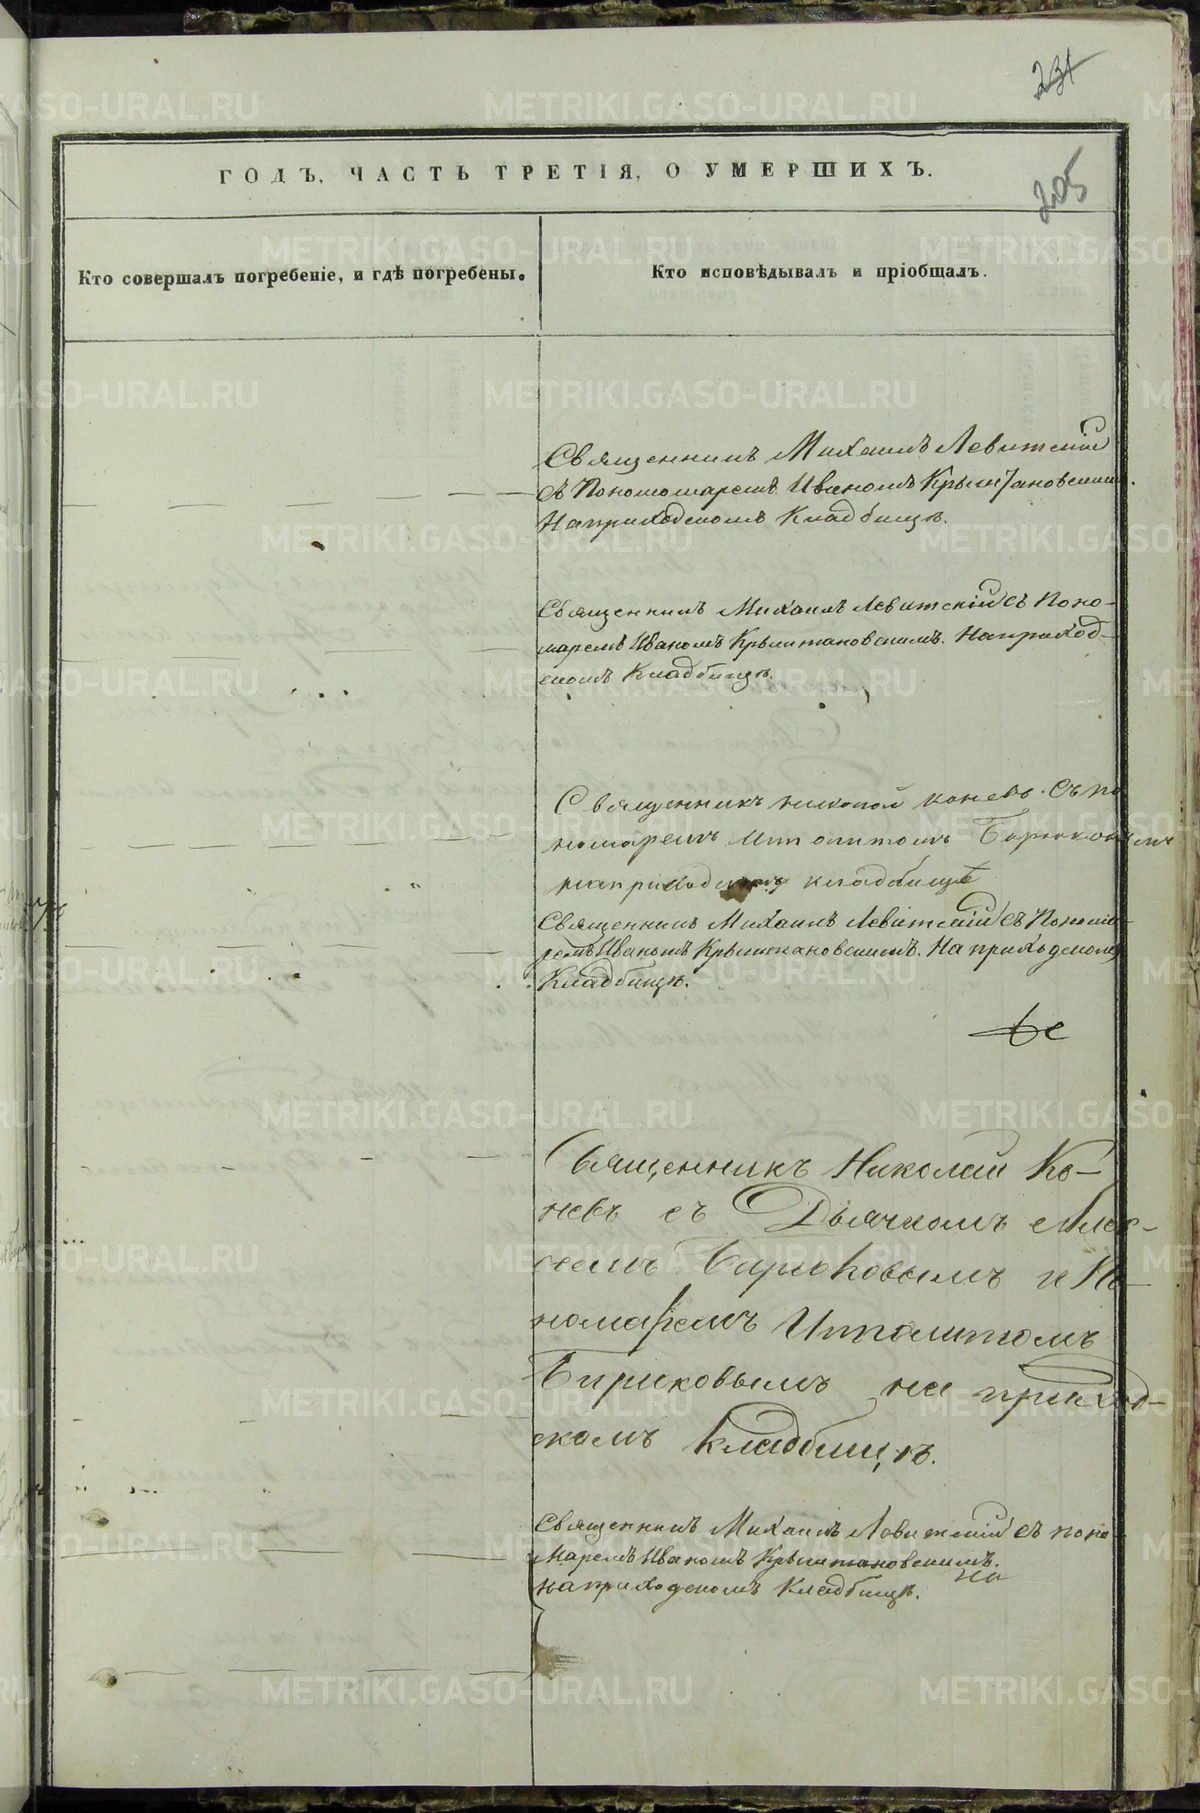 231
205
ГОДЪ, ЧАСТЬ ТРЕТІЯ, О УМЕРШИХЪ.
Кто совершалъ погребеніе, и гдѣ погребены.
Кто исповѣдывалъ и пріобщалъ.
Священникъ Михаилъ Левитскій
съ Пономаремъ Иваномъ Крыштановскимъ.
На приходскомъ Кладбищѣ.
Священникъ Михаилъ Левитскій съ Поно-
маремъ Иваномъ Крыштановскимъ. На приход-
скомъ Кладбищѣ.
Священникъ Николай Коневъ. Съ по
номаремъ Ипполитомъ Бирюковымъ
на приходскомъ кладбищѣ
Священникъ Михаилъ Левитскій съ Понома-
ремъ Иваномъ Крыштановскимъ. На приходскомъ
Кладбищѣ.
Священникъ Николай Ко-
невъ съ Дьячкомъ Алек-
сеемъ Бирюковымъ и По-
номаремъ Ипполитомъ
Бирюковымъ на приход-
скомъ кладбищѣ.
Священникъ Михаилъ Левитскій съ поно
маремъ Иваномъ Крыштановскимъ.
на приходскомъ Кладбищѣ. на
METRIKI.GASO-URAL.RU